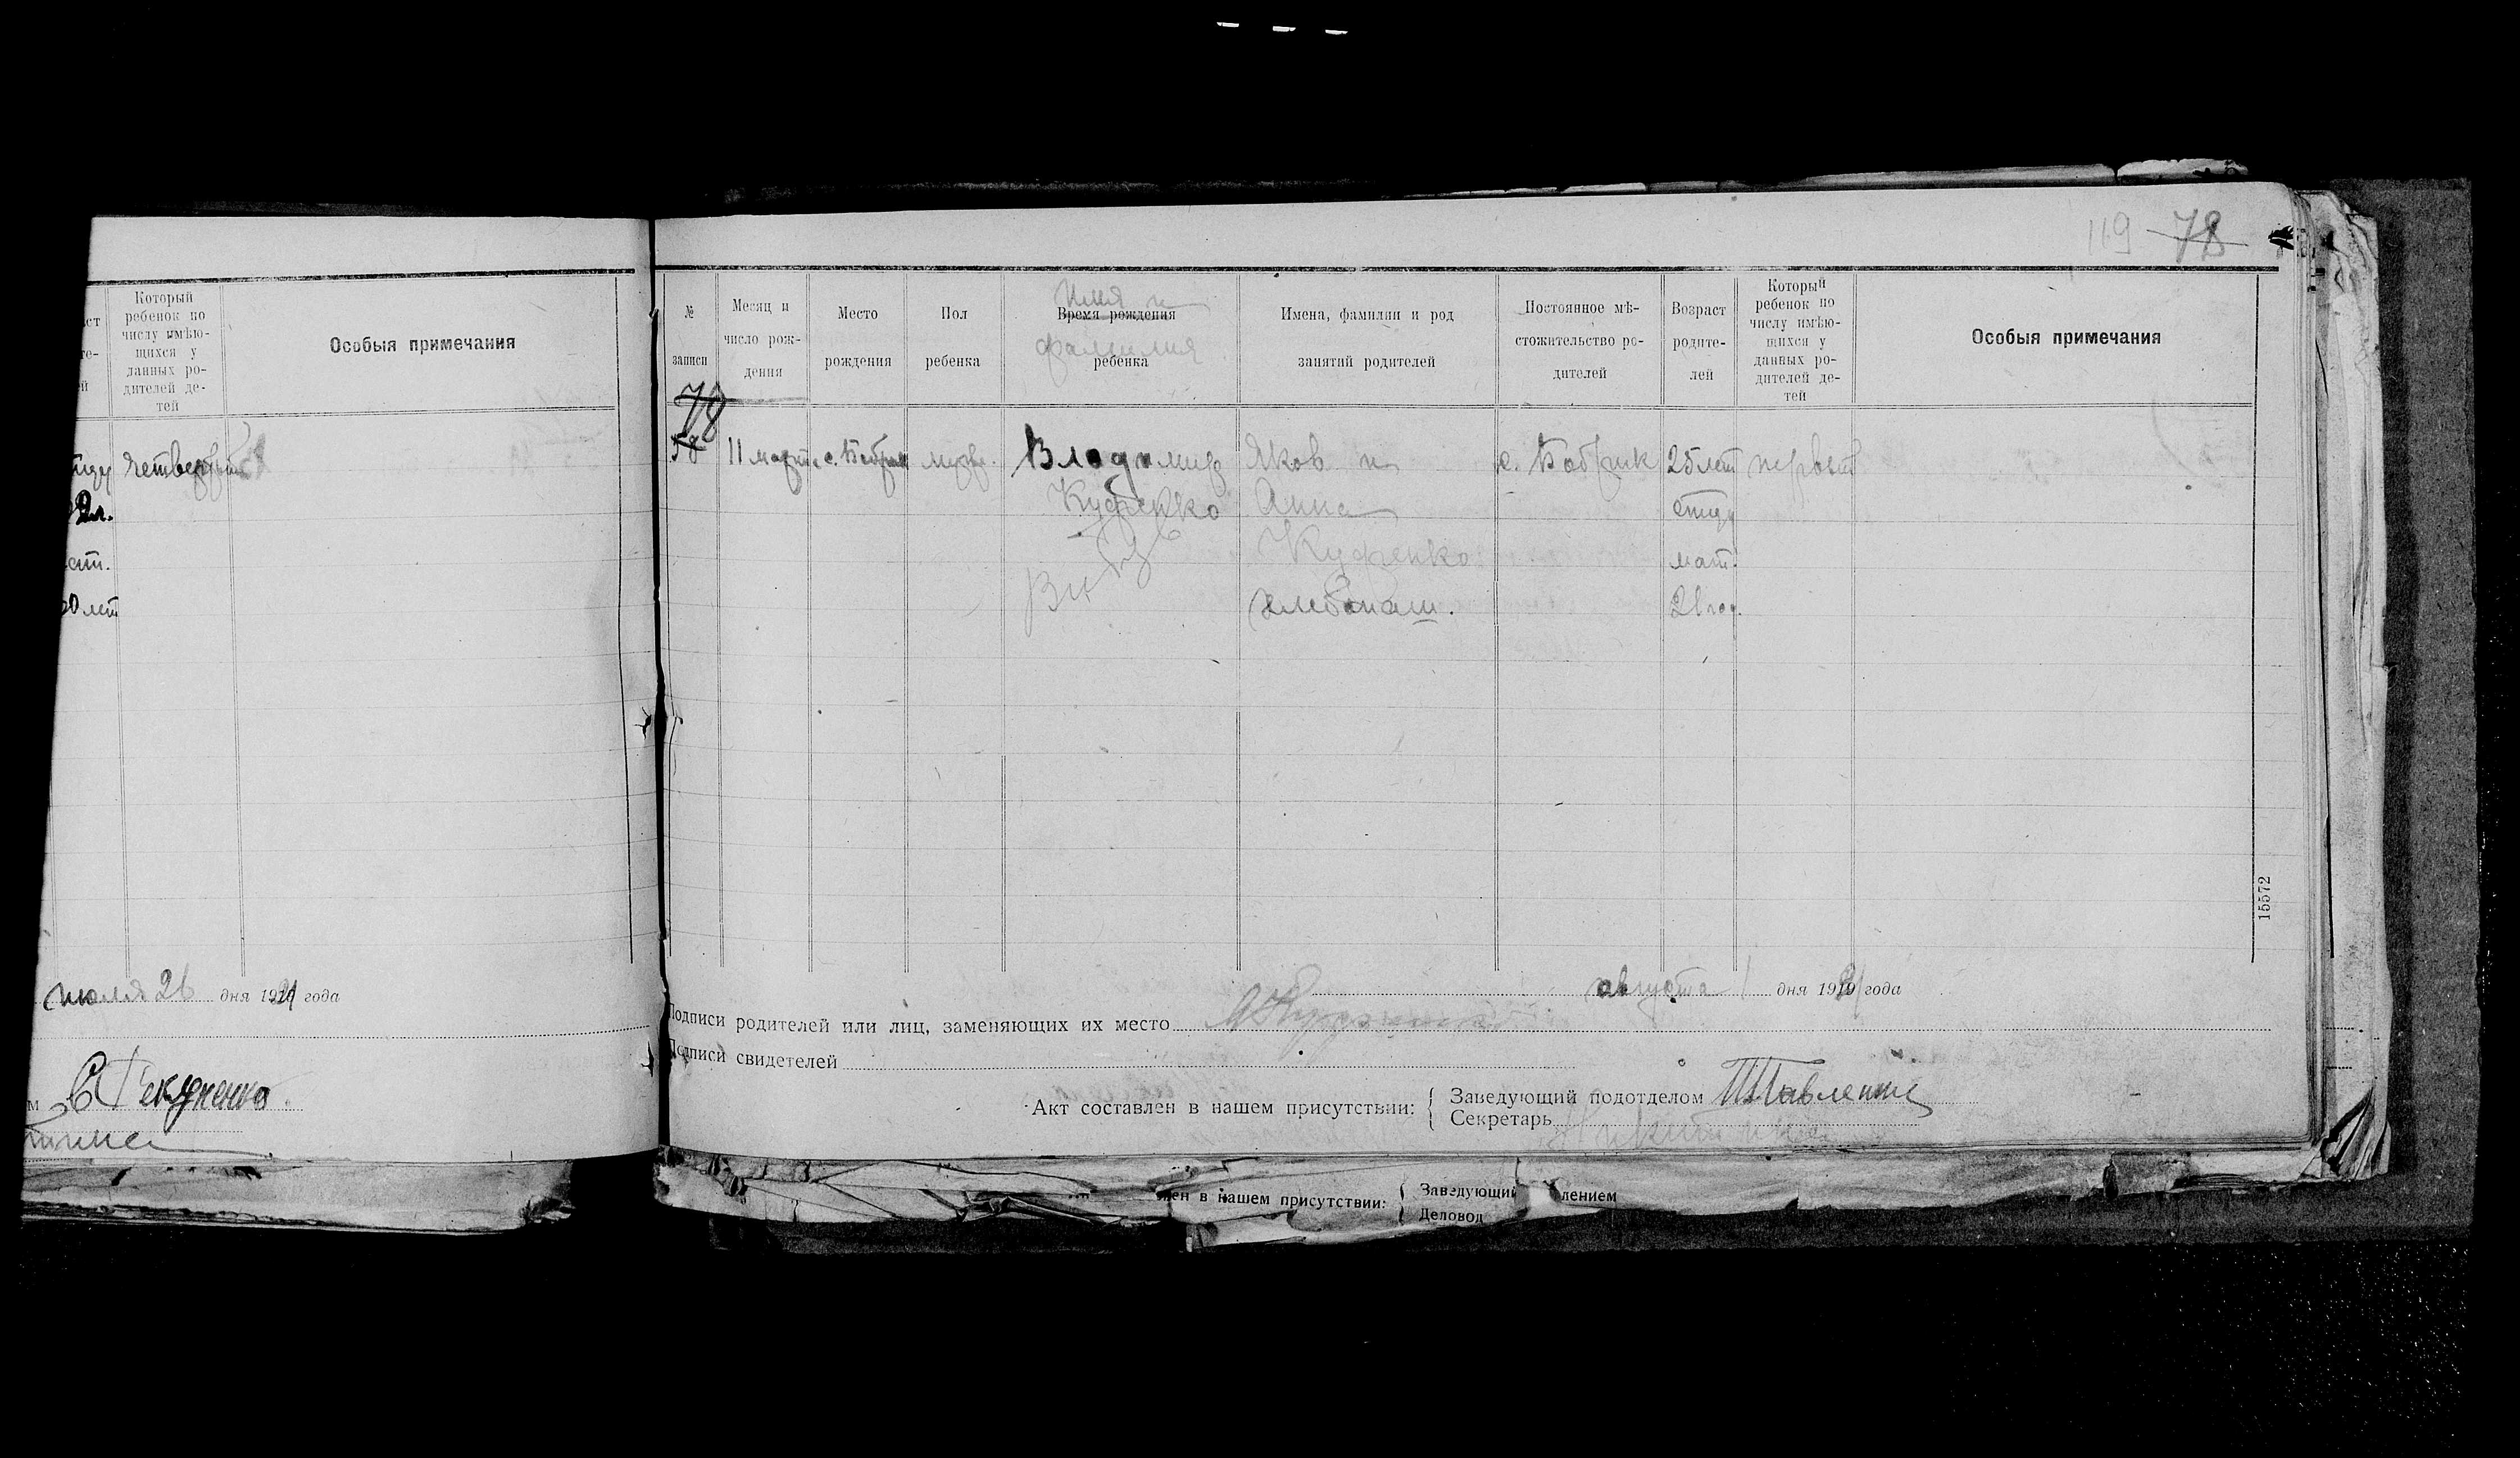 Который
ребенок по
числу имѣю-
щихся у
данных ро-
дителей де-
тей
Особыя примечания
четвертый
2л.
лет
июля 26 дня 1921 года
Текученко
119 78
№
записи
Месяц и
число рож-
дения
Место
рождения
Пол
ребенка
Имя и
Время рождения
фамилия
ребенка
Имена, фамилии и род
занятий родителей
Постоянное мѣ-
стожительство ро-
дителей
Возраст
родите-
лей
Который
ребенок по
числу имѣю-
щихся у
данных ро-
дителей де-
тей
Особыя примечания
78
58 11 марта с. Бобрик мужс. Владимир Яков и с. Бобрик 25 лет первый
Куценко Анна отцу
Куценко мат.
хлебопаш. 21 год.
15572
августа 1 дня 1921 года
Подписи родителей или лиц, заменяющих их место
Подписи свидетелей
Акт составлен в нашем присутствии: { Заведующий подотделом Павленко
Секретарь
ен в нашем присутствии: { Заведующий лением
Деловод